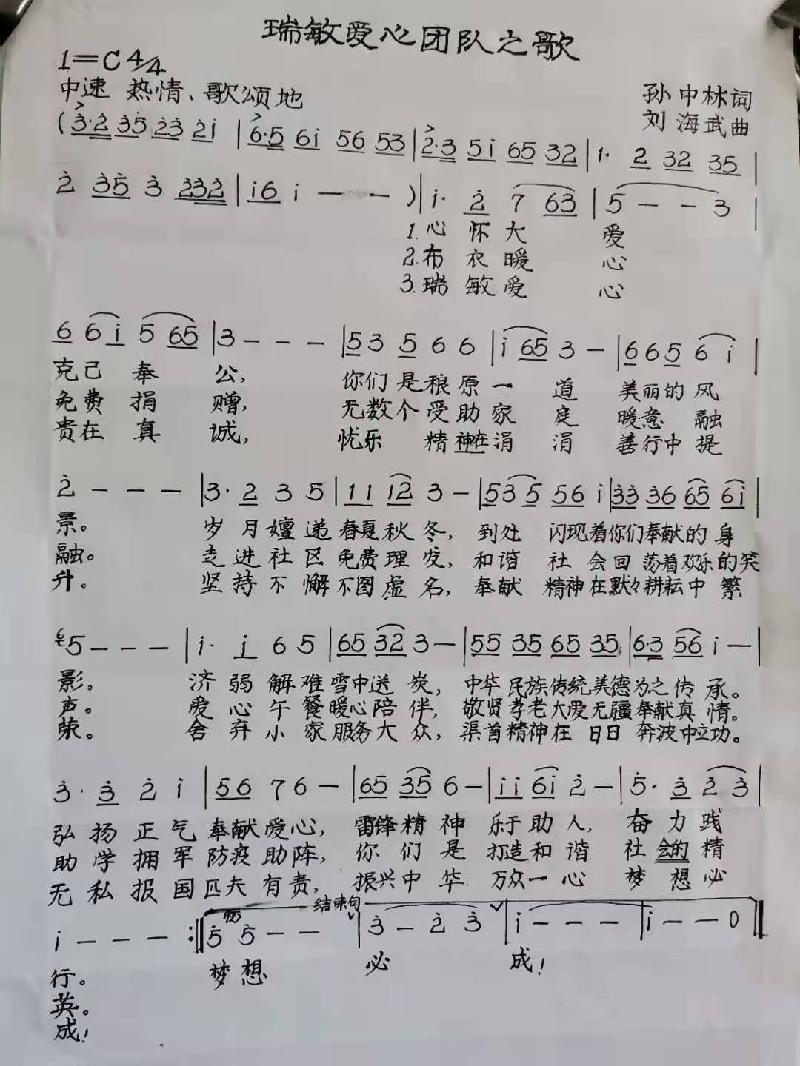 瑞敏爱心团队之歌
1=C 4/4
中速 热情、歌颂地
孙中林词
刘海武曲
(3·2 35 23 2i | 6·5 6i 56 53 | 2·3 5i 65 32 | 1· 2 32 35 |
2 35 3 232 | i6 i — — ) | i· 2 7 63 | 5 — — 3
1.心怀大爱
2.布衣暖心
3.瑞敏爱心
6 6i 5 65 | 3 — — — | 53 5 6 6 | i 65 3 — | 6 6 5 6 i |
克己奉公, 你们是稂原一道 美丽的风
免费捐赠, 无数个受助家庭 暖意融
贵在真诚, 忧乐精神在涓涓 善行中提
2 — — — | 3· 2 3 5 | 11 12 3 — | 53 5 56 i | 33 36 65 6i |
景。 岁月嬗递春夏秋冬, 到处 闪现着你们奉献的身
融。 走进社区免费理发, 和谐社会回荡着欢乐的笑
升。 坚持不懈不图虚名, 奉献精神在默々耕耘中繁
5 — — — | i· i 6 5· | 65 32 3 — | 55 35 65 35 | 6·3 56 i — |
影。 济弱解难雪中送炭, 中华民族传统美德为之传承。
声。 爱心午餐暖心陪伴, 敬贤孝老大爱无疆奉献真情。
荣。 舍弃小家服务大众, 渠首精神在日日奔波中立功。
3· 3 2 i | 56 76 — | 65 35 6 — | ii 6i 2 — | 5· 3 2 3 |
弘扬正气奉献爱心, 雷锋精神 乐于助人, 奋力践
助学拥军防疫助阵, 你们是 打造和谐社会的精
无私报国匹夫有责, 振兴中华 万众一心 梦想必
结束句
i — — — :‖ 5 5 — — | 3 — 2 3 | i — — — | i — — 0 ‖
行。 梦想 必 成!
英。
成!